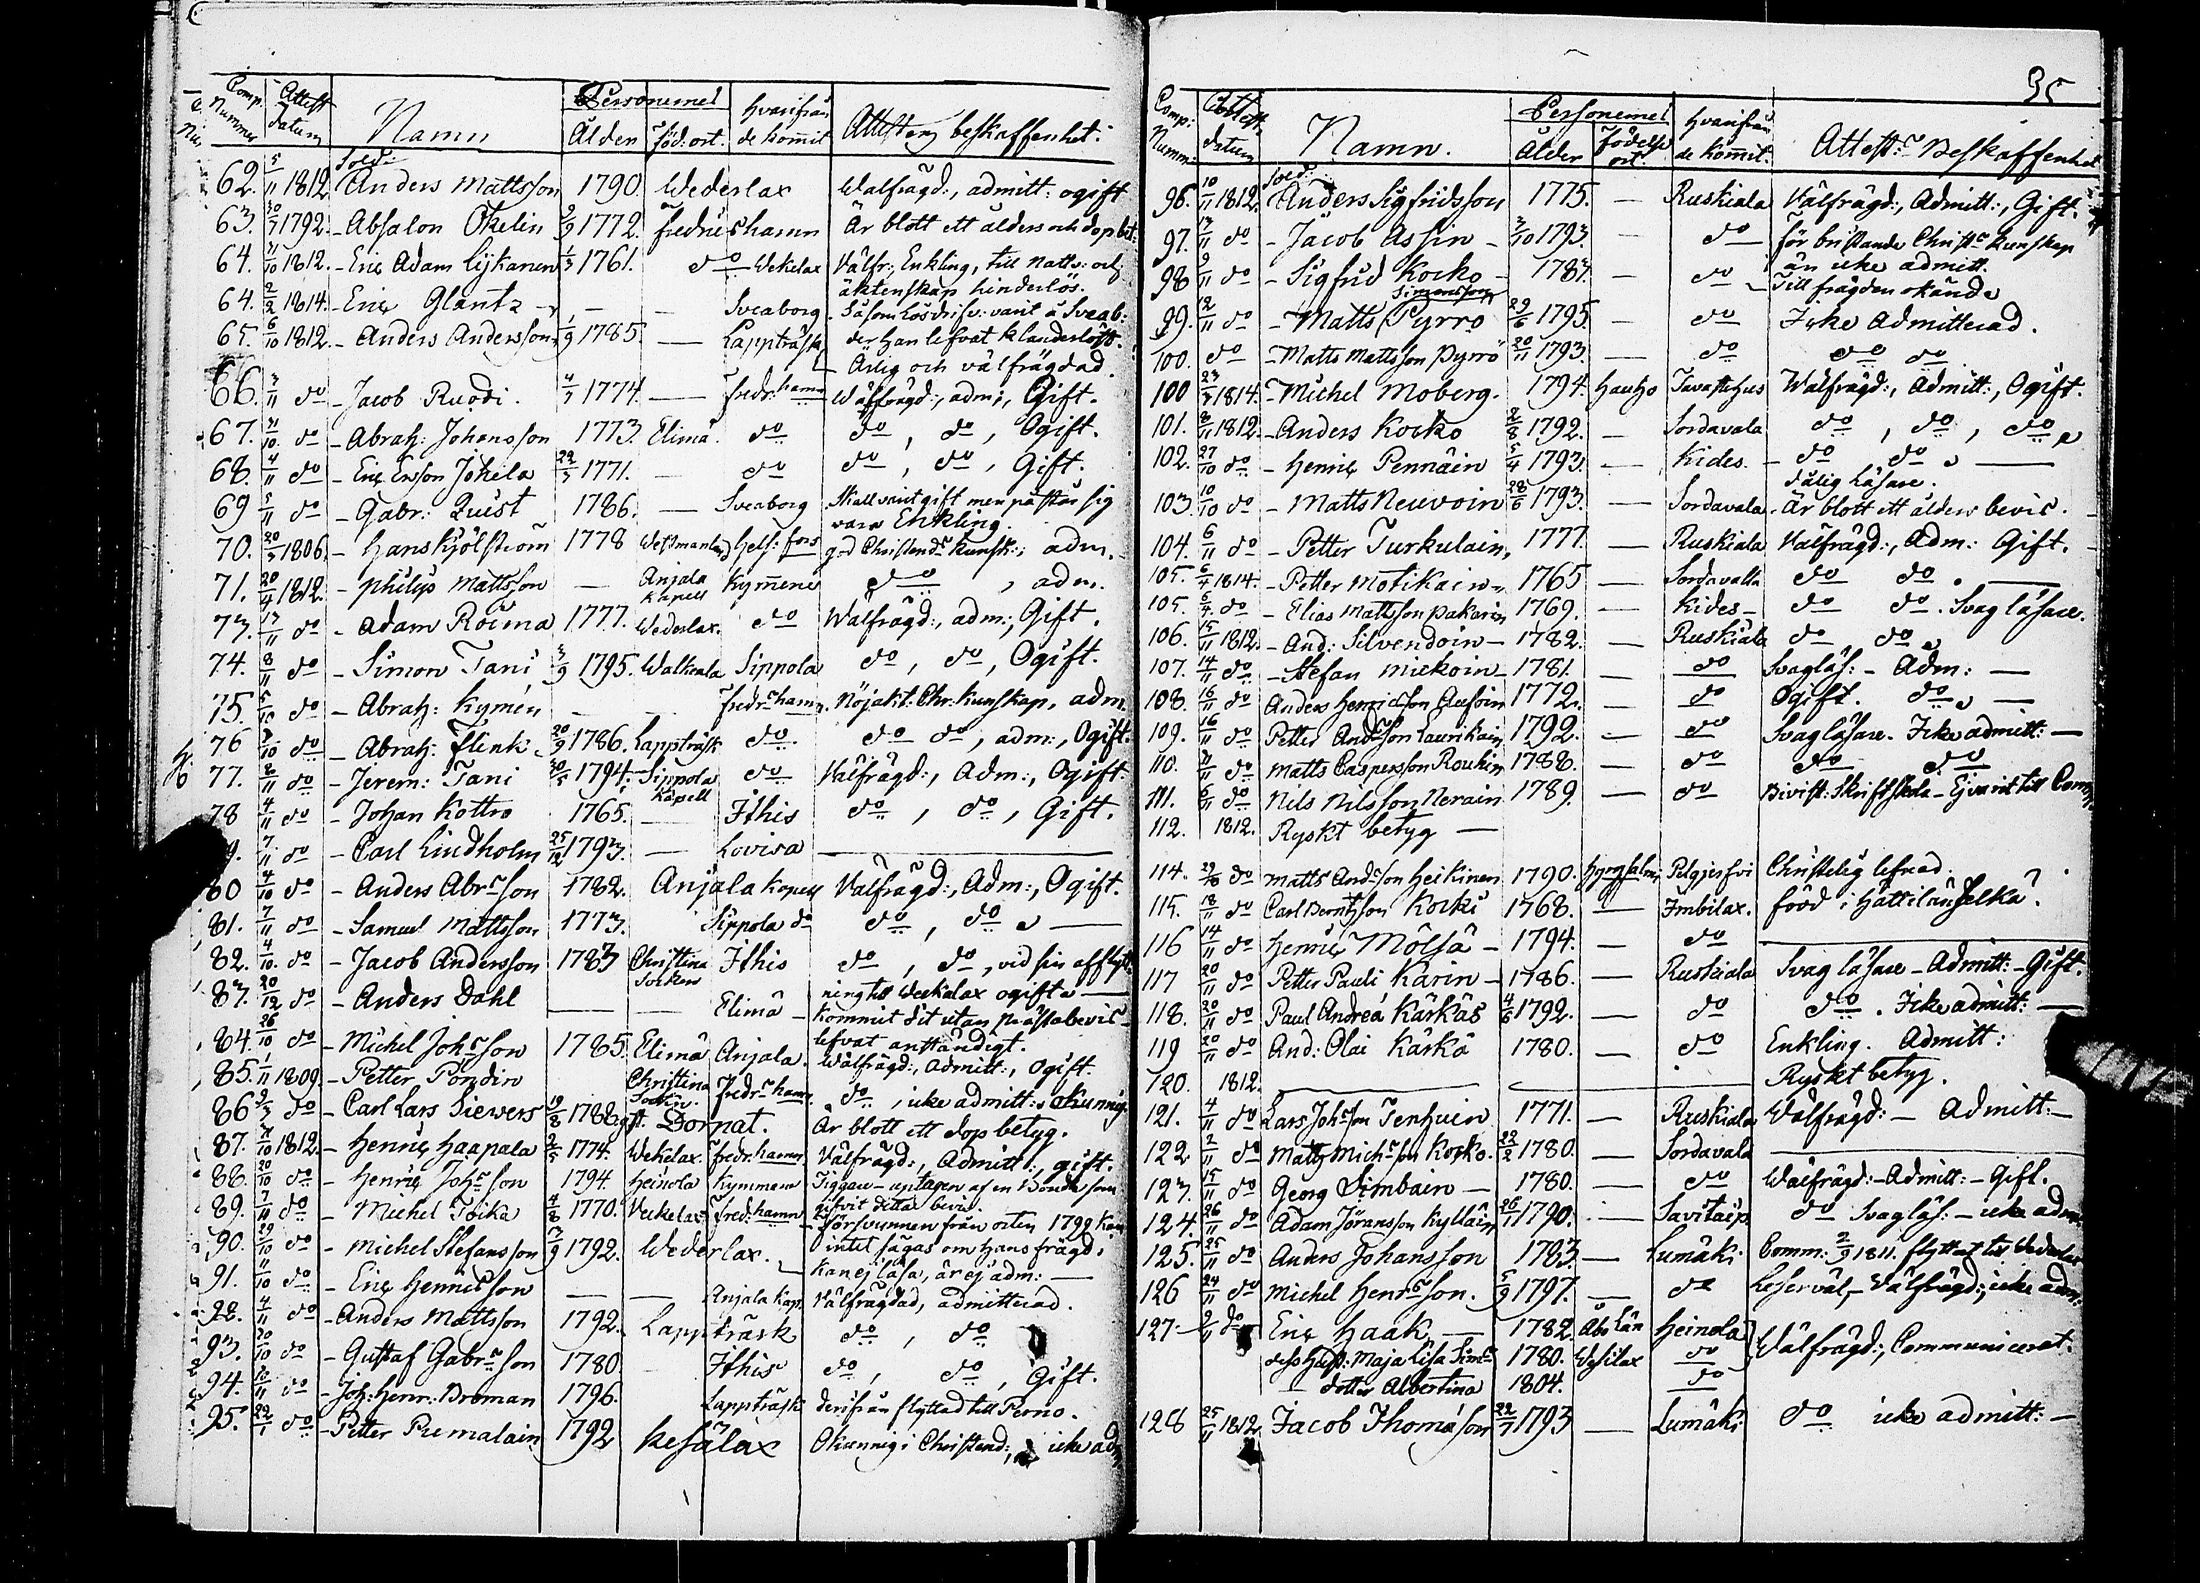 Comp. Nummer Attest datum Namn Personernes Ålder föd: ort. hvarifrån de kommit Attestens beskaffenhet.
Sold:
62. 5/11 1812. Anders Mattsson 1790. Wederlax Walfrägd:, admitt: ogift
63. 30/7 1792. - Absalon Okelin 9/9 1772. fredrics hamn Är blott ett ålders och dopbet:
64. 31/10 1812. - Eric Adam Lijkanen 1/3 1761. do Wekelax Välfr:, Enkling, till natts: och
äktenskap hinderlös.
64. 2/2 1814. - Eric Glantz - - - Sveaborg - Såsom Lösdrifv: varit å Sveab:
65. 6/10 1812. - Anders Andersson 1/9 1785. — Lappträsk der han lefvat klanderlöst.
Ärlig och välfrägdad.
66. 3/11 do - Jacob Ruodi. 4/3 1774. — fredr: hamn Wälfrägd:, adm:, Gift.
67. 31/10 do - Abrah: Johansson 1773. Elimä. do do, do, Ogift.
68. 4/11 do - Eric Ersson Jokela 22/3 1771. — do do, do, Gift.
69 5/11 do - Gabr: Quist 1786. — Sveaborg Skall varit gift men påstår sig
vara Enkling.
70. 20/3 1806. - Hans Kjölström 1778 Westmanland Hels: fors god Christend: kunsk:, adm.
71. 20/4 1812. - Philip Mattsson — Anjala Kapell Kymene do, adm.
73. 17/11 do - Adam Roima 1777. Wederlax. do Walfrägd:, adm:, Gift.
74. 8/11 do - Simon Tani 3/9 1795. Walkiala Sippola do, do, Ogift.
75. 5/10 do - Abrah: Kymén — — fredr: hamn. Nöjakt: Chr: kunskap, adm.
76 7/10 do - Abrah: Flink. 20/9 1786. Lappträsk do. do do, adm:, Ogift.
77. 8/11 do - Jerem: Tani 30/5 1794. Sippola Kapell do Välfrägd:, Adm:, Ogift.
78 4/11 do - Johan Kottro 1765. — Ithis do, do, Gift.
9. 7/11 do - Carl Lindholm 25/12 1793. — Lovisa —
80 4/10 do - Anders Abrsson 1782. Anjala Kapell Välfrägd:, Adm:, Ogift.
81. 7/11 do - Samuel Mattsson 1773. Sippola do do, do —
82. 4/10 do - Jacob Andersson 1783 Christina Socken Ithis do, do, vid sin afflytt-
83. 20/12 do - Anders Dahl — — Elimä ning till Weckelax ogift —
kommit dit utan prästabevis -
84. 26/10 do - Michel Johsson 1785. Elimä Anjala. lefvat anständigt.
85. 1/11 1809. - Petter Pordin Christina Socken fredr: hamn Wälfrägd:, Admitt:, Ogift.
86 3/3 do - Carl Lars Siewers 19/8 1788. Dornat. do, icke admitt:, okunnig.
Är blott ett dop betyg.
87. 7/10 1812. - Henric Haapala 2/5 1774. Wekelax. fredr: hamn Välfrägd:, Admitt:, gift.
88. 20/10 do - Henric Johsson 1794. Heinola Kymmene Tiggare - uptagen af en Bonde som
gifvit detta bevis.
89. 7/11 do - Michel Toika 4/8 1770. Weckelax fred: hamn - försvunnen från orten 1792 kan
90. 29/10 do - Michel Stefansson 17/9 1792. Wederlax. intet sägas om hans frägd.
91. 11/10 do - Eric Henricsson — — Anjala Kap. kan ej läsa, är ej adm: —
92. 4/11 do - Anders Mattsson 1792. Lappträsk Välfrägdad, admitterad.
93. 20/10 do - Gustaf Gabrsson 1780. Ithis do, do
94. 10/11 do - Joh: Henr: Broman 1796. Lappträsk do, do, Gift.
95. 22/1 do - Petter Remalain 1792 Kesälax derifrån flyttad till Perno.
Okunnig i Christend:, icke adm
35
Comp: Numm: Attest datum Namn. Personernes Ålder Födelse ort. hvarifrån de kommit: Attest: Beskaffenhet
Sold:
96. 10/11 1812. Anders Sigfridsson 1775. — Ruskiala Välfrägd:, Admitt:, Gift.
97. 13/11 do - Jacob Assin - 3/10 1793. — do för bristande Christ: kunskap
98 9/11 do - Sigfrid Kocko - 1787. — do än icke admitt.
Till frägden okände
Simonsson
99. 12/11 do - Matts Pyrrö 29/6 1795. — do Icke Admitterad.
100. do - Matts Mattsson Pyrrö 20/11 1793. — do do do
100 23/3 1814. - Michel Moberg. 1794. Hauho Tavastehus Walfrägd:, Admitt:, Ogift.
101. 8/11 1812. - Anders Kocko 2/8 1792. — Sordavala do, do, do
102. 27/10 do - Henric Pennäin 5/4 1793. — Kides. - do do —
dålig Läsare.
103. 10/10 do - Matts Neuvoin 28/6 1793. — Sordavala. Är blott ett ålders bevis.
104. 6/11 do - Petter Turkulain, 1777. — Ruskiala Välfrägd:, Adm: Gift.
105. 6/4 1814. - Petter Motikain 1765 — Sordavalla do do. —
105. 6/4 do - Elias Mattsson Pakarin 1769. — Kides - do do. Svag läsare.
106. 15/11 1812. - And: Silvendoin - 1782. — Ruskiala do do
107. 14/11 do - Stefan Mickoin - 1781. — do Svagläs: - Adm: —
108. 16/11 do Anders Henricsson 1772. — do Ogift. do —
109. 16/11 do Petter Andsson Laurikain 1792. — do Svag läsare. Icke admitt: —
110. 7/11 do Matts Caspersson Roukin 1788. — do do do
111. 6/11 do Nils Nilsson Nerain 1789. — do Bivist: Skriftskola - Ej varit till Comm:
112. 1812. Ryskt betyg —
114. 29/10 do Matts Andsson Heikinen 1790. Hyrysalmi Pelgjerfvi Christelig lefnad.
115. 18/11 do Carl Berntsson Kocki 1768. — Imbilax. född i Hattilän Selkä?
116 14/11 do Henric Mölsä - 1794. — do —
117 20/11 do Petter Pauli Karin - 1786. — Ruskiala Svag läsare - Admitt: - Gift.
118. 20/11 do Paul Andreä Kärkäs 4/6 1792. — do do. Icke admitt: —
119 20/11 do And: Olai Kärkä 1780. — do Enkling. Admitt:
120. 1812. — — Ryskt betyg.
121. 4/11 do Lars Johsson Tenhuin 1771. — Ruskiala Wälfrägd: - Admitt: —
122 2/11 do Matts Michsson Kocko. 22/2 1780. — Sordavala —
123. 15/11 do Georg Simbain — 1780. — do Wälfrägd: - Admitt: - Gift.
124. 26/11 do Adam Jöransson Kylläin 26/11 1790. — Savitaip. do Svagläs: - icke adm.
125. 25/11 do Anders Johansson 1783. — Lumäki Comm: 2/9 1811. flyttat till Vederlax
126 24/11 do Michel Henrsson. 5/9 1797. — do Läser väl, - Välfrägd:, icke adm.
127 - 2/11 do Eric Haak — 1782. Åbo Län Heinola Wälfrägd:, Communicerat.
dess Hust: Maja Lisa Sim: 1780. Wesilax do
— dotter Albertina 1804. do
128 25/11 1812 Jacob Thomasson 22/7 1793 — Lumäki do icke admitt: —